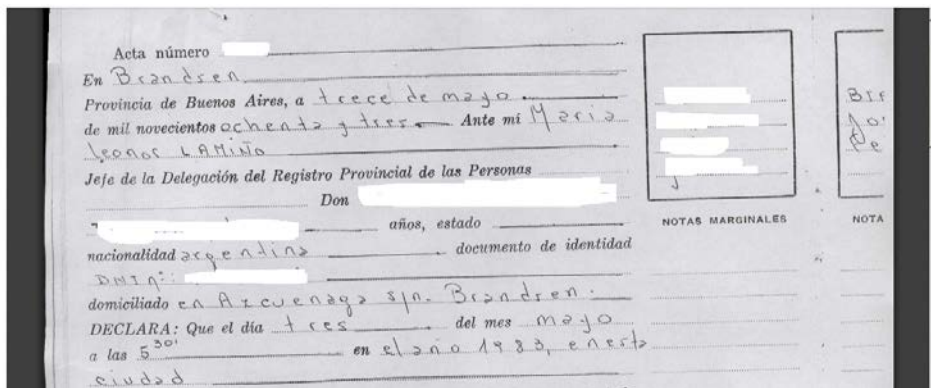 Acta número
En Brandsen
Provincia de Buenos Aires, a trece de mayo
de mil novecientos ochenta y tres Ante mí Maria
Leonor LAMIÑO
Jefe de la Delegación del Registro Provincial de las Personas
Don
años, estado
nacionalidad argentina documento de identidad
DNI nº:
domiciliado en Azcuenaga s/n. Brandsen.
DECLARA: Que el día tres del mes mayo
a las 5 30' en el año 1983, en esta
ciudad
NOTAS MARGINALES
NOTA